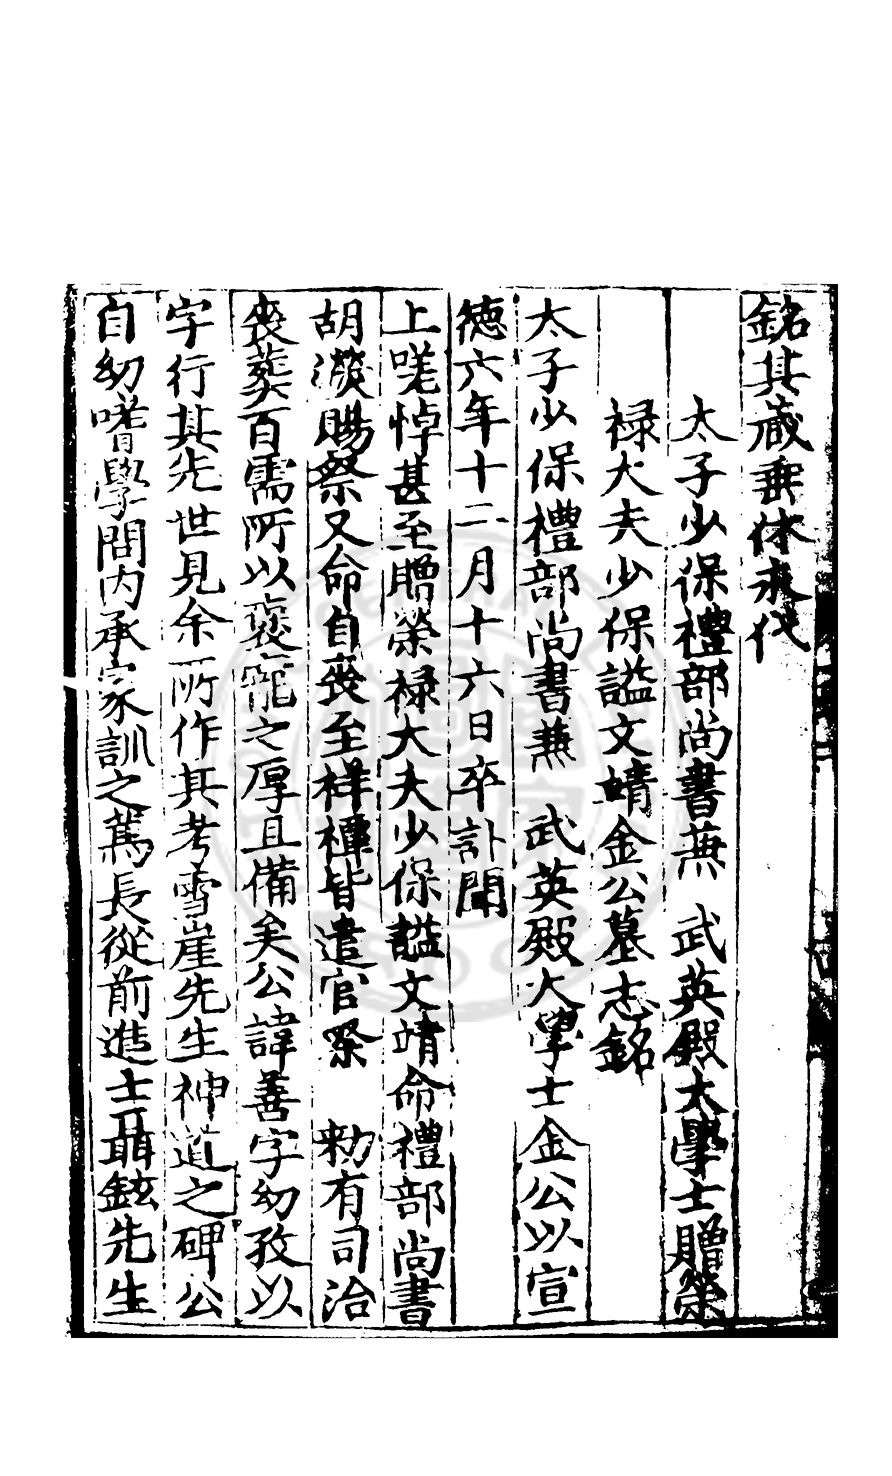 銘其藏垂休永代
太子少保禮部尚書兼 武英殿大學士贈榮
祿大夫少保謚文靖金公墓志銘
太子少保禮部尚書兼 武英殿大學士金公以宣
德六年十二月十六日卒訃聞
上嗟悼甚至贈榮祿大夫少保謚文靖命禮部尚書
胡濙賜祭又命自喪至祥禫皆遣官祭 勑有司治
喪葬百需所以褒寵之厚且備矣公諱善字幼孜以
字行其先世見余所作其考雪崖先生神道之碑公
自幼嗜學問內承家訓之篤長從前進士聶鉉先生